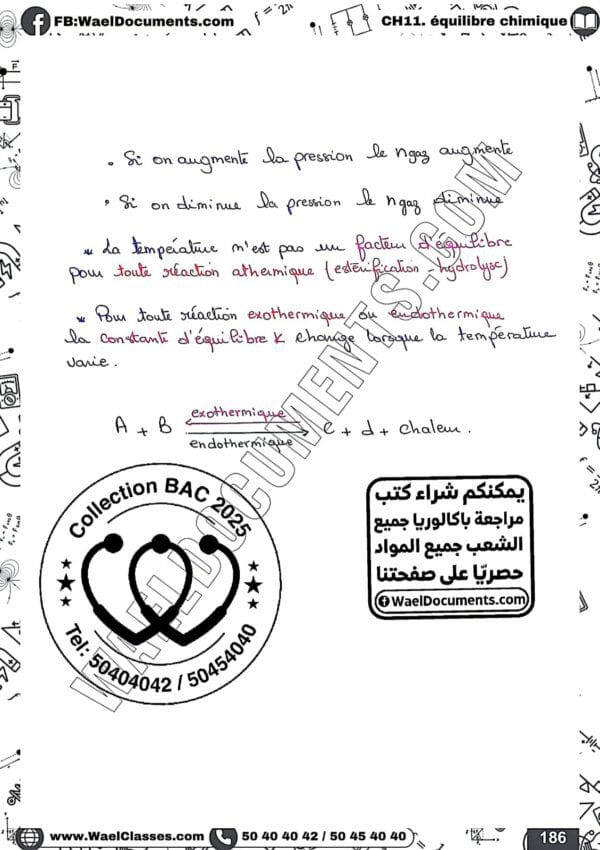 FB:WaelDocuments.com
CH11. équilibre chimique
• Si on augmente la pression le ngaz augmente
• Si on diminue la pression le ngaz diminue
* La température n'est pas un facteur d'équilibre
pour toute réaction athermique (estérification - hydrolyse)
* Pour toute réaction exothermique ou endothermique
la constante d'équilibre K change lorsque la température
varie.
exothermique
A + B C + d + chaleur.
endothermique
WAELDOCUMENTS.COM
Collection BAC 2025
Tel: 50404042 / 50454040
يمكنكم شراء كتب
مراجعة باكالوريا جميع
الشعب جميع المواد
حصريّا على صفحتنا
WaelDocuments.com
www.WaelClasses.com
50 40 40 42 / 50 45 40 40
186